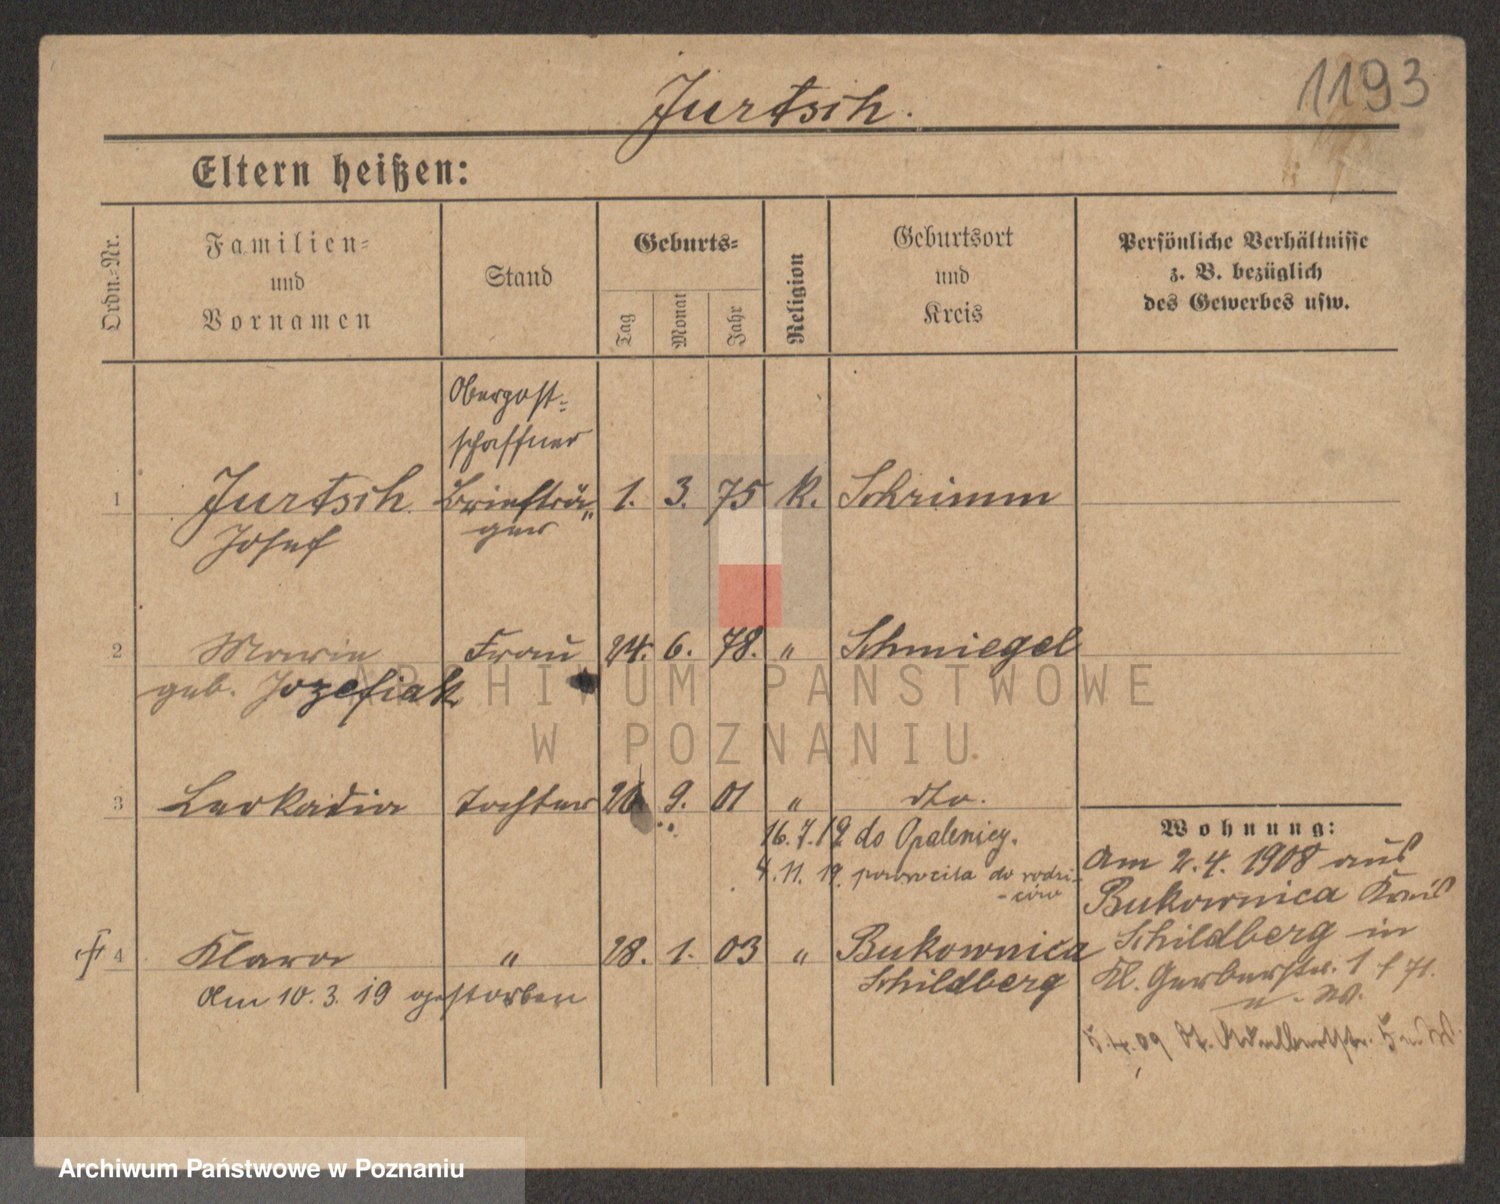 1193
Jurtsch.
Eltern heißen:
Ordn.-Nr.
Familien-
und
Vornamen
Stand
Geburts-
Tag
Monat
Jahr
Religion
Geburtsort
und
Kreis
Persönliche Verhältnisse
z. B. bezüglich
des Gewerbes usw.
Oberpost-
schaffner
1 Jurtsch Briefträ- 1. 3. 75 k. Schrimm
Josef ger
2 Marie Frau 24. 6. 78. " Schmiegel
geb. Jozefiak
ARCHIWUM PAŃSTWOWE
W POZNANIU
3 Leokadia Tochter 9. 01 " dto.
16.7.19 do Opalenicy.
4.11.19. powrociła do rodzi-
-ców
4 Klara " 28. 1. 03 " Bukownica
Schildberg
Am 10.3.19 gestorben
Wohnung:
Am 2.4.1908 aus
Bukownica Kreis
Schildberg in
Kl. Gerberstr. 1
5.4.09 St. Adalbertstr. 5
Archiwum Państwowe w Poznaniu